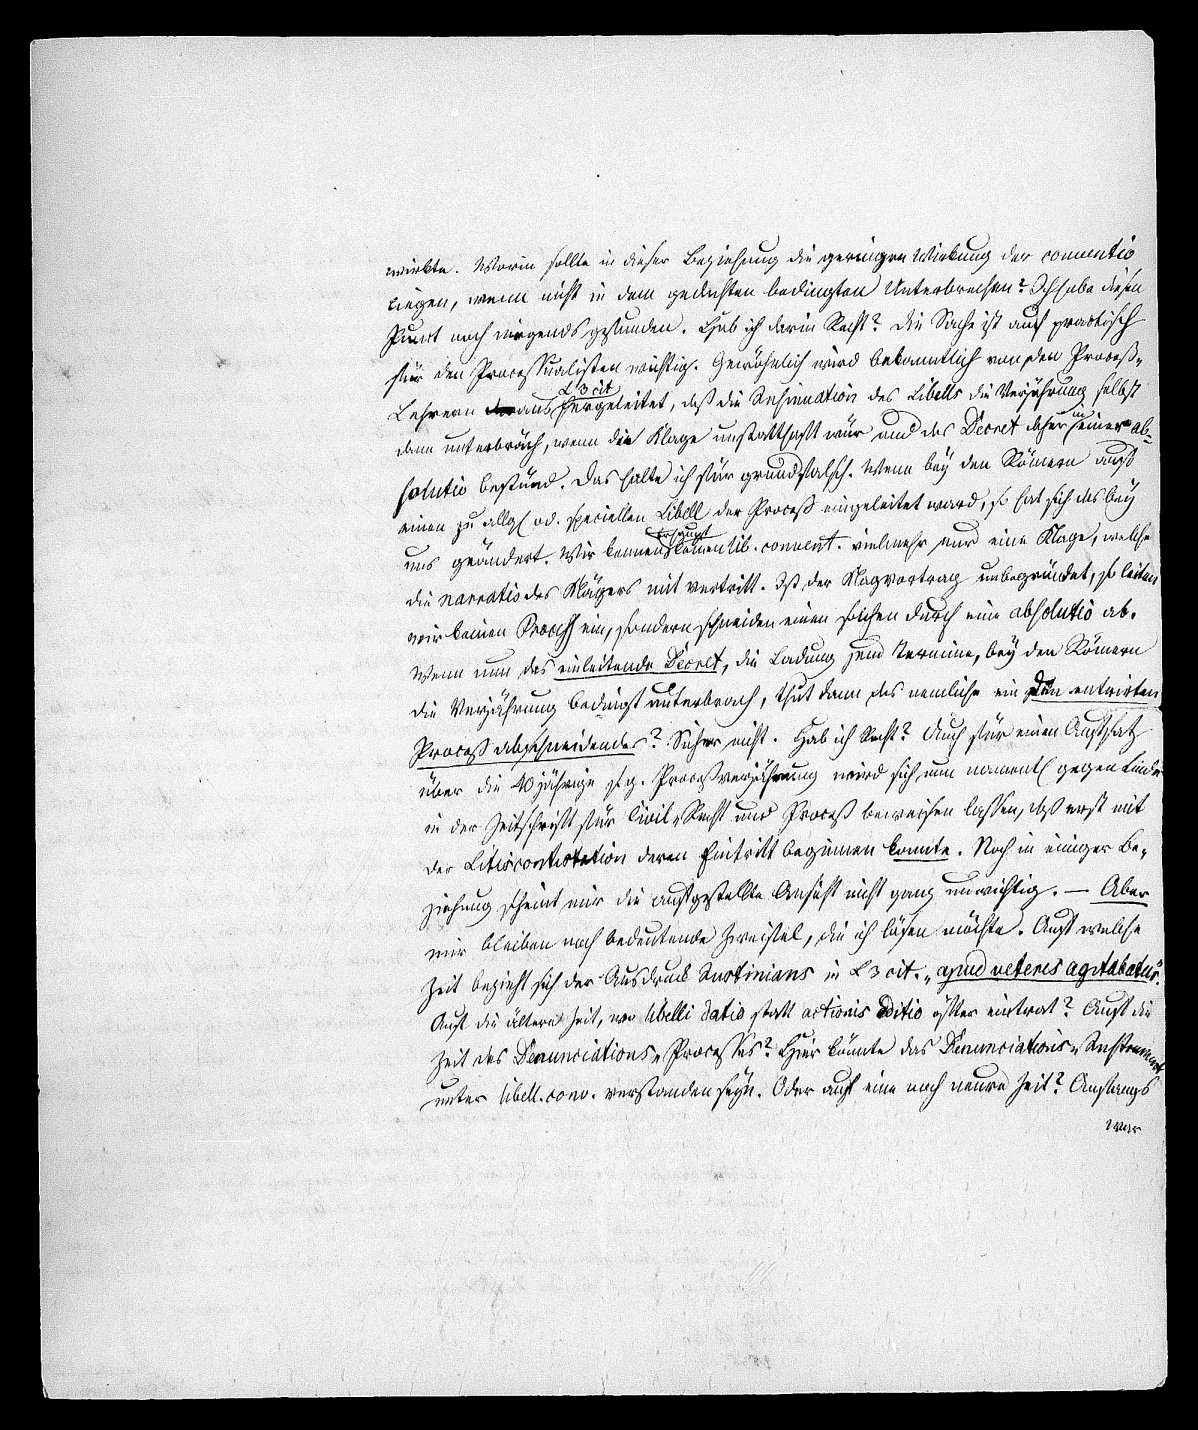 wirkte. Worin sollte in dieser Beziehung die geringere Wirkung der conventio
liegen, wenn nicht in dem gedachten bedingten Unterbrechen? Ich habe diesen
Punct noch nirgends gefunden. Hab ich darin Recht? Die Sache ist auch practisch
für den Processualisten wichtig. Gewöhnlich wird bekanntlich von den Proceß-
Lehrern aus L 3 cit hergeleitet, daß die Insinuation des Libells die Verjährung selbst
dann unterbräch, wenn die Klage unstatthaft wär und das Decret daher in einer ab-
solutio bestünd. Das halte ich für grundfalsch. Wenn bey den Römern auch
einen zu allg. od. speciellen Libell der Proceß eingeleitet ward, so hat sich das bey
uns geändert. Wir kennen überhaupt keinen lib. convent. vielmehr nur eine Klage, welche
die narratio des Klägers mit vertritt. Ist der Klagvortrag unbegründet, so leiten
wir keinen Proceß ein, sondern schneiden einen solchen durch eine absolutio ab.
Wenn nun das einleitende Decret, die Ladung zum Termine, bey den Römern
die Verjährung bedingt unterbrach, thut dann das nemliche ein den
Proceß abschneidendes? Sicher nicht. Hab ich Recht? Auch für einen Aufsatz
über die 40 jährige sog. Proceßverjährung wird sich nun namentl. gegen Linde
in der Zeitschrift für Civil-Recht und Proceß beweisen lassen, daß erst mit
der Litiscontestation deren Eintritt beginnen konnte. Noch in einiger Be-
ziehung scheint mir die aufgestellte Ansicht nicht ganz unwichtig. — Aber
mir bleiben noch bedeutende Zweifel, die ich lösen möchte. Auf welche
Zeit bezieht sich der Ausdruck Justinians in L 3 cit. „apud veteres agitabatur“?
Auf die ältere Zeit, wo libelli datio statt actionis editio öfter eintrat? Auf die
Zeit des Denunciations-Processes? Hier könnte das Denunciations-Instrument
unter libell. conv. verstanden seyn. Oder auf eine noch neure Zeit? Anfangs
war